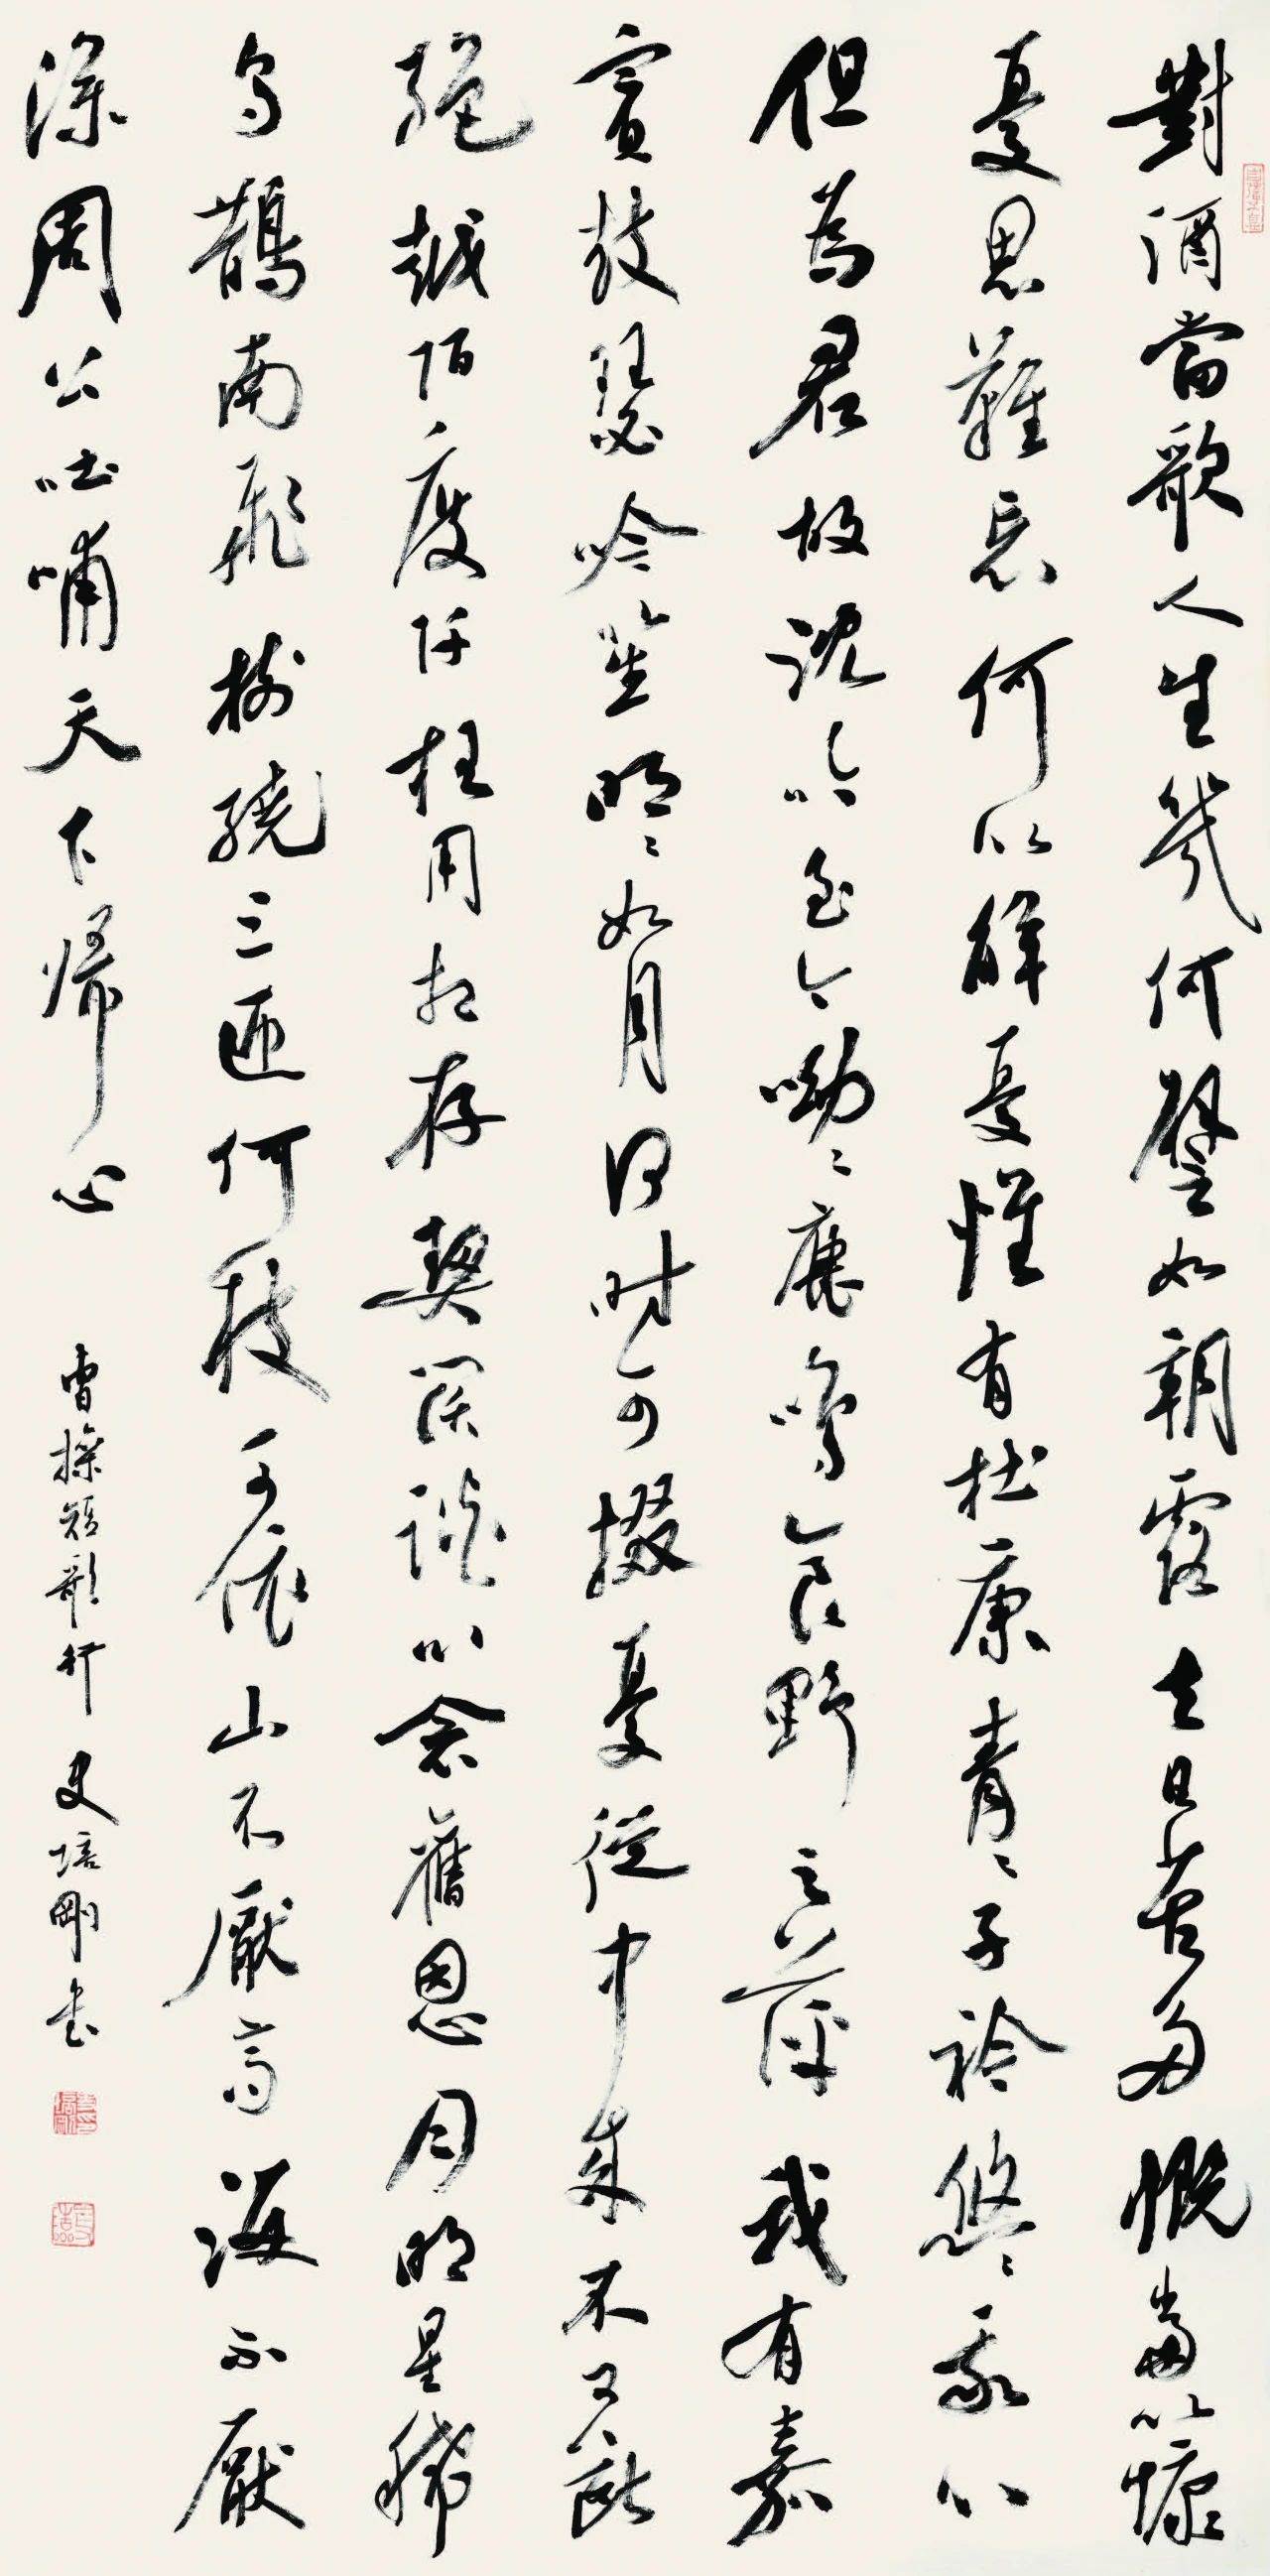 對酒當歌人生幾何譬如朝露去日苦多慨當以慷
憂思難忘何以解憂惟有杜康青〻子衿悠〻我心
但為君故沈吟至今呦〻鹿鳴食野之蘋我有嘉
賓鼓瑟吟笙明〻如月何時可掇憂從中來不可斷
絕越陌度阡枉用相存契闊談心念舊恩月明星稀
烏鵲南飛樹繞三匝何枝可依山不厭高海不厭
深周公吐哺天下歸心 曹操短歌行 史培剛書